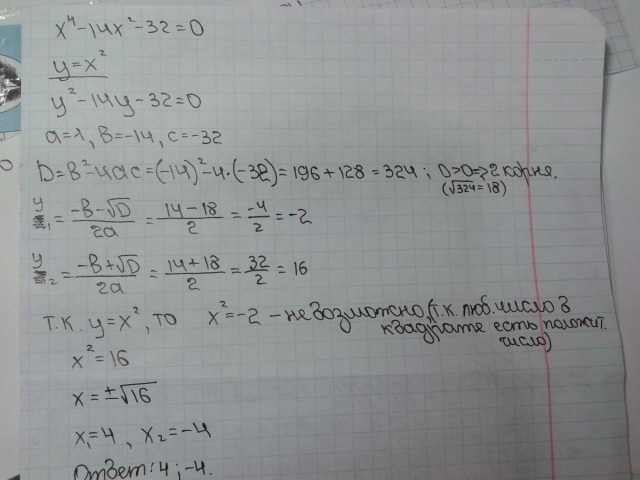 x⁴-14x²-32=0
y=x²
y²-14y-32=0
a=1, b=-14, c=-32
D=b²-4ac=(-14)²-4·(-32)=196+128=324; D>0=>2 корня.
(√324=18)
y₁=(-b-√D)/2a=(14-18)/2=-4/2=-2
y₂=(-b+√D)/2a=(14+18)/2=32/2=16
т.к. y=x², то x²=-2 - невозможно, (т.к. люб. число в
квадрате есть положит.
число)
x²=16
x=±√16
x₁=4, x₂=-4
Ответ: 4; -4.